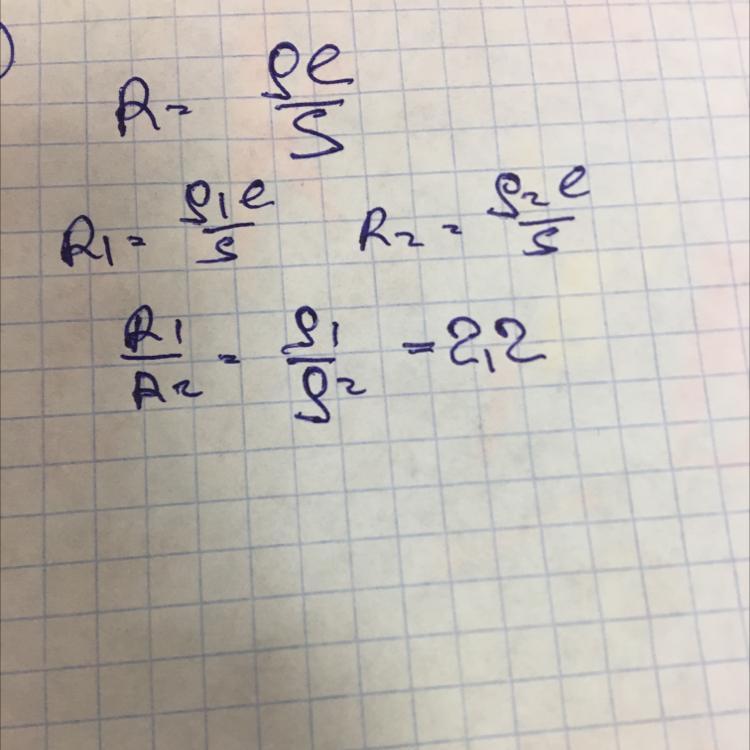 R = ρl/S
R1 = ρ1l/S R2 = ρ2l/S
R1/R2 = ρ1/ρ2 = 2,2